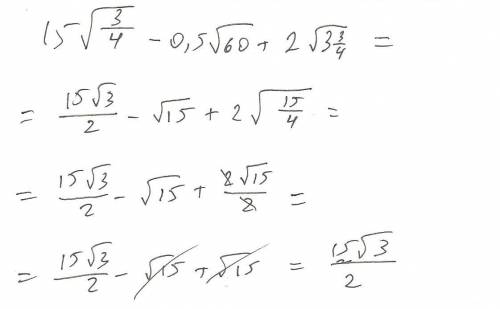 15√3/4 - 0,5√60 + 2√3 3/4 =
= 15√3/2 - √15 + 2√15/4 =
= 15√3/2 - √15 + 2√15/2 =
= 15√3/2 - √15 + √15 = 15√3/2